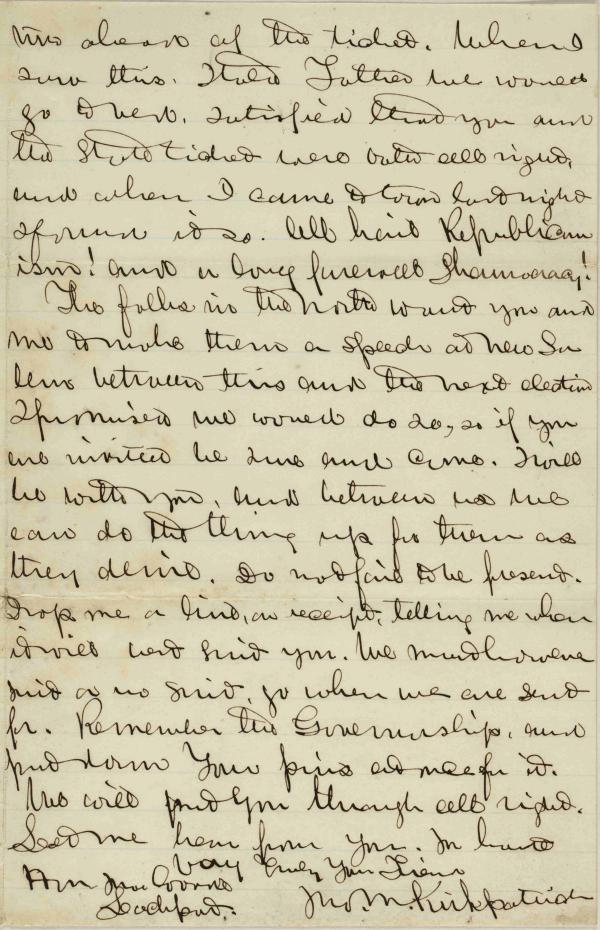 was ahead of the ticket. When I
saw this, I told Father we would
go to rest, satisfied that you and
the State ticket were both all right,
and when I came to town last night
I found it so. All hail Republican
ism! and a long farewell Shamocracy!
The folks in the North want you and
me to make them a speech at New Sa
lem between this and the next election
I promised we would do so, so if you
are invited be sure and come. I will
be with you, and between us we
can do the thing up for them as
they desire. Do not fail to be present.
Drop me a line, on receipt, telling me when
it will best suit you. We must however
suit or no suit, go when we are sent
for. Remember the Governorship, and
put down Your pins at once for it.
We will put You through all right.
Let me hear from you. In haste
Very truly Your Friend
Hon
Lockport.
Jno. M. Kirkpatrick